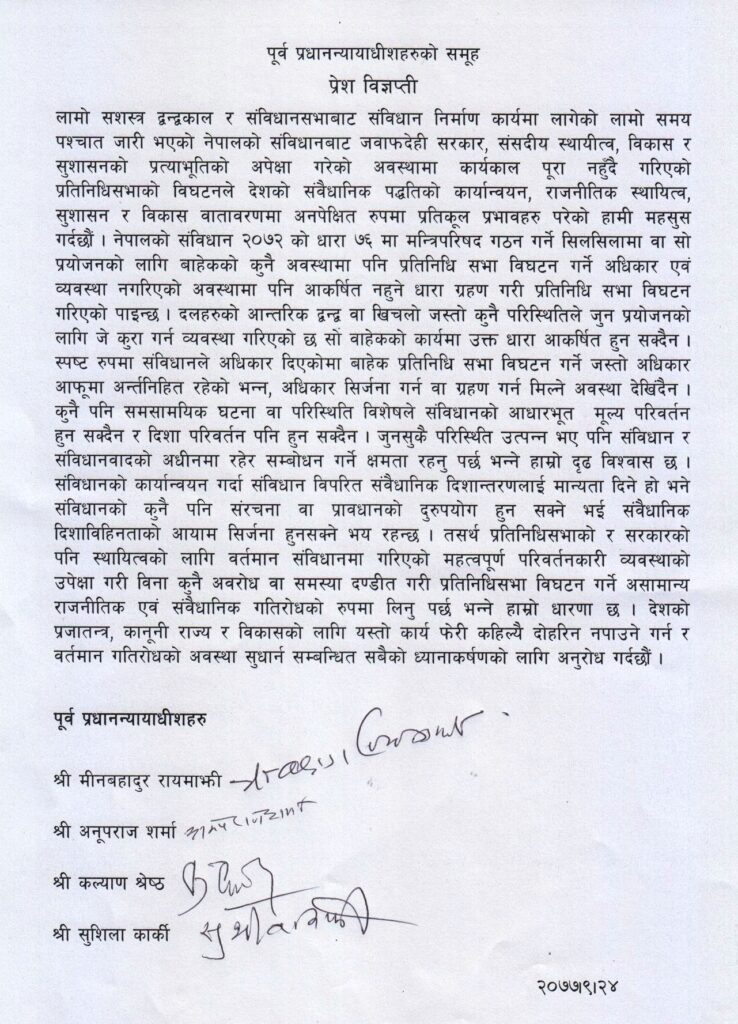 पूर्व प्रधानन्यायाधीशहरुको समूह
प्रेश विज्ञप्ती
लामो सशस्त्र द्वन्द्वकाल र संविधानसभाबाट संविधान निर्माण कार्यमा लागेको लामो समय
पश्चात जारी भएको नेपालको संविधानबाट जवाफदेही सरकार, संसदीय स्थायीत्व, विकास र
सुशासनको प्रत्याभूतिको अपेक्षा गरेको अवस्थामा कार्यकाल पूरा नहुँदै गरिएको
प्रतिनिधिसभाको विघटनले देशको संवैधानिक पद्धतिको कार्यान्वयन, राजनीतिक स्थायित्व,
सुशासन र विकास वातावरणमा अनपेक्षित रुपमा प्रतिकूल प्रभावहरु परेको हामी महसुस
गर्दछौं । नेपालको संविधान २०७२ को धारा ७६ मा मन्त्रिपरिषद गठन गर्ने सिलसिलामा वा सो
प्रयोजनको लागि बाहेकको कुनै अवस्थामा पनि प्रतिनिधि सभा विघटन गर्ने अधिकार एवं
व्यवस्था नगरिएको अवस्थामा पनि आकर्षित नहुने धारा ग्रहण गरी प्रतिनिधि सभा विघटन
गरिएको पाइन्छ । दलहरुको आन्तरिक द्वन्द्व वा खिचलो जस्तो कुनै परिस्थितिले जुन प्रयोजनको
लागि जे कुरा गर्न व्यवस्था गरिएको छ सो बाहेकको कार्यमा उक्त धारा आकर्षित हुन सक्दैन ।
स्पष्ट रुपमा संविधानले अधिकार दिएकोमा बाहेक प्रतिनिधि सभा विघटन गर्ने जस्तो अधिकार
आफूमा अर्न्तनिहित रहेको भन्न, अधिकार सिर्जना गर्न वा ग्रहण गर्न मिल्ने अवस्था देखिंदैन ।
कुनै पनि समसामयिक घटना वा परिस्थिति विशेषले संविधानको आधारभूत मूल्य परिवर्तन
हुन सक्दैन र दिशा परिवर्तन पनि हुन सक्दैन । जुनसुकै परिस्थिति उत्पन्न भए पनि संविधान र
संविधानवादको अधीनमा रहेर सम्बोधन गर्ने क्षमता रहनु पर्छ भन्ने हाम्रो दृढ विश्वास छ ।
संविधानको कार्यान्वयन गर्दा संविधान विपरित संवैधानिक दिशान्तरणलाई मान्यता दिने हो भने
संविधानको कुनै पनि संरचना वा प्रावधानको दुरुपयोग हुन सक्ने भई संवैधानिक
दिशाविहिनताको आयाम सिर्जना हुनसक्ने भय रहन्छ । तसर्थ प्रतिनिधिसभाको र सरकारको
पनि स्थायित्वको लागि वर्तमान संविधानमा गरिएको महत्वपूर्ण परिवर्तनकारी व्यवस्थाको
उपेक्षा गरी विना कुनै अवरोध वा समस्या दण्डीत गरी प्रतिनिधिसभा विघटन गर्ने असामान्य
राजनीतिक एवं संवैधानिक गतिरोधको रुपमा लिनु पर्छ भन्ने हाम्रो धारणा छ । देशको
प्रजातन्त्र, कानूनी राज्य र विकासको लागि यस्तो कार्य फेरी कहिल्यै दोहरिन नपाउने गर्न र
वर्तमान गतिरोधको अवस्था सुधार्न सम्बन्धित सबैको ध्यानाकर्षणको लागि अनुरोध गर्दछौं ।
पूर्व प्रधानन्यायाधीशहरु
श्री मीनबहादुर रायमाझी
श्री अनूपराज शर्मा
श्री कल्याण श्रेष्ठ
श्री सुशिला कार्की
२०७७।९।२४